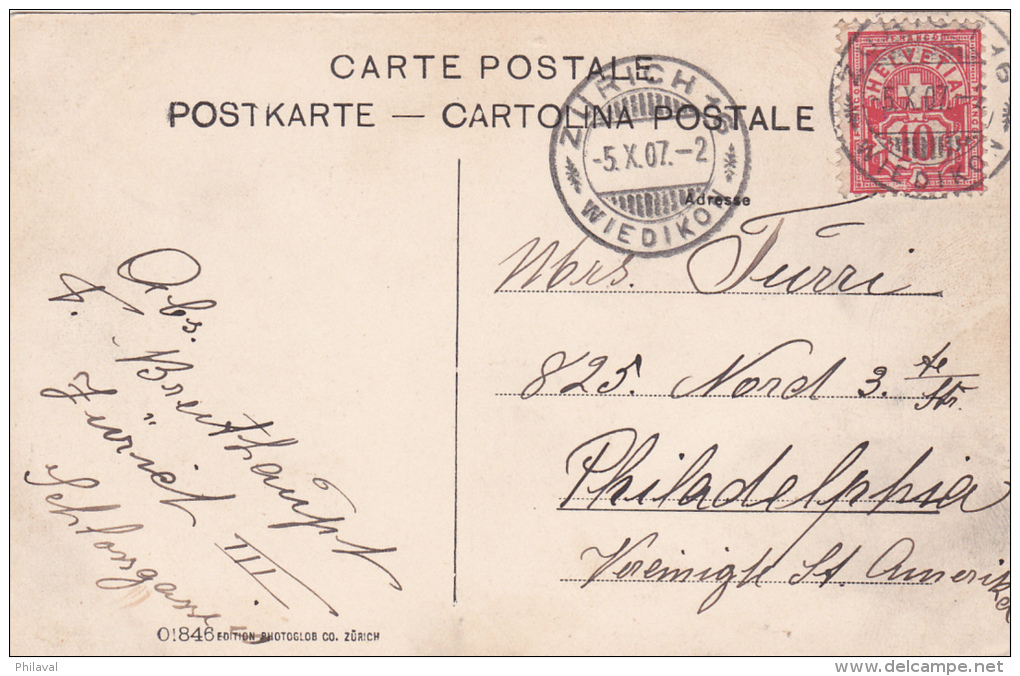 CARTE POSTALE
POSTKARTE — CARTOLINA POSTALE
ZÜRICH 16
-5.X.07.-2
WIEDIKON
HELVETIA
10
-5.X.07.
WIEDIKON
Adresse
Mrs. Turri
825. Nord 3. te Str.
Philadelphia
Vereinigt St. Amerika
Abs.
F. Breithaupt
Zürich III
Schlossgasse
01846 EDITION PHOTOGLOB CO. ZÜRICH
Philaval
www.delcampe.net